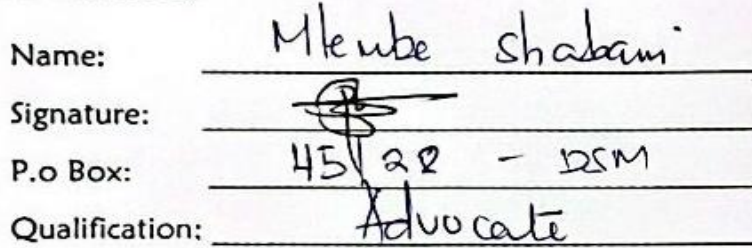 Name: Mlembe Shabani
Signature:
P.o Box: 45122 - DSM
Qualification: Advocate